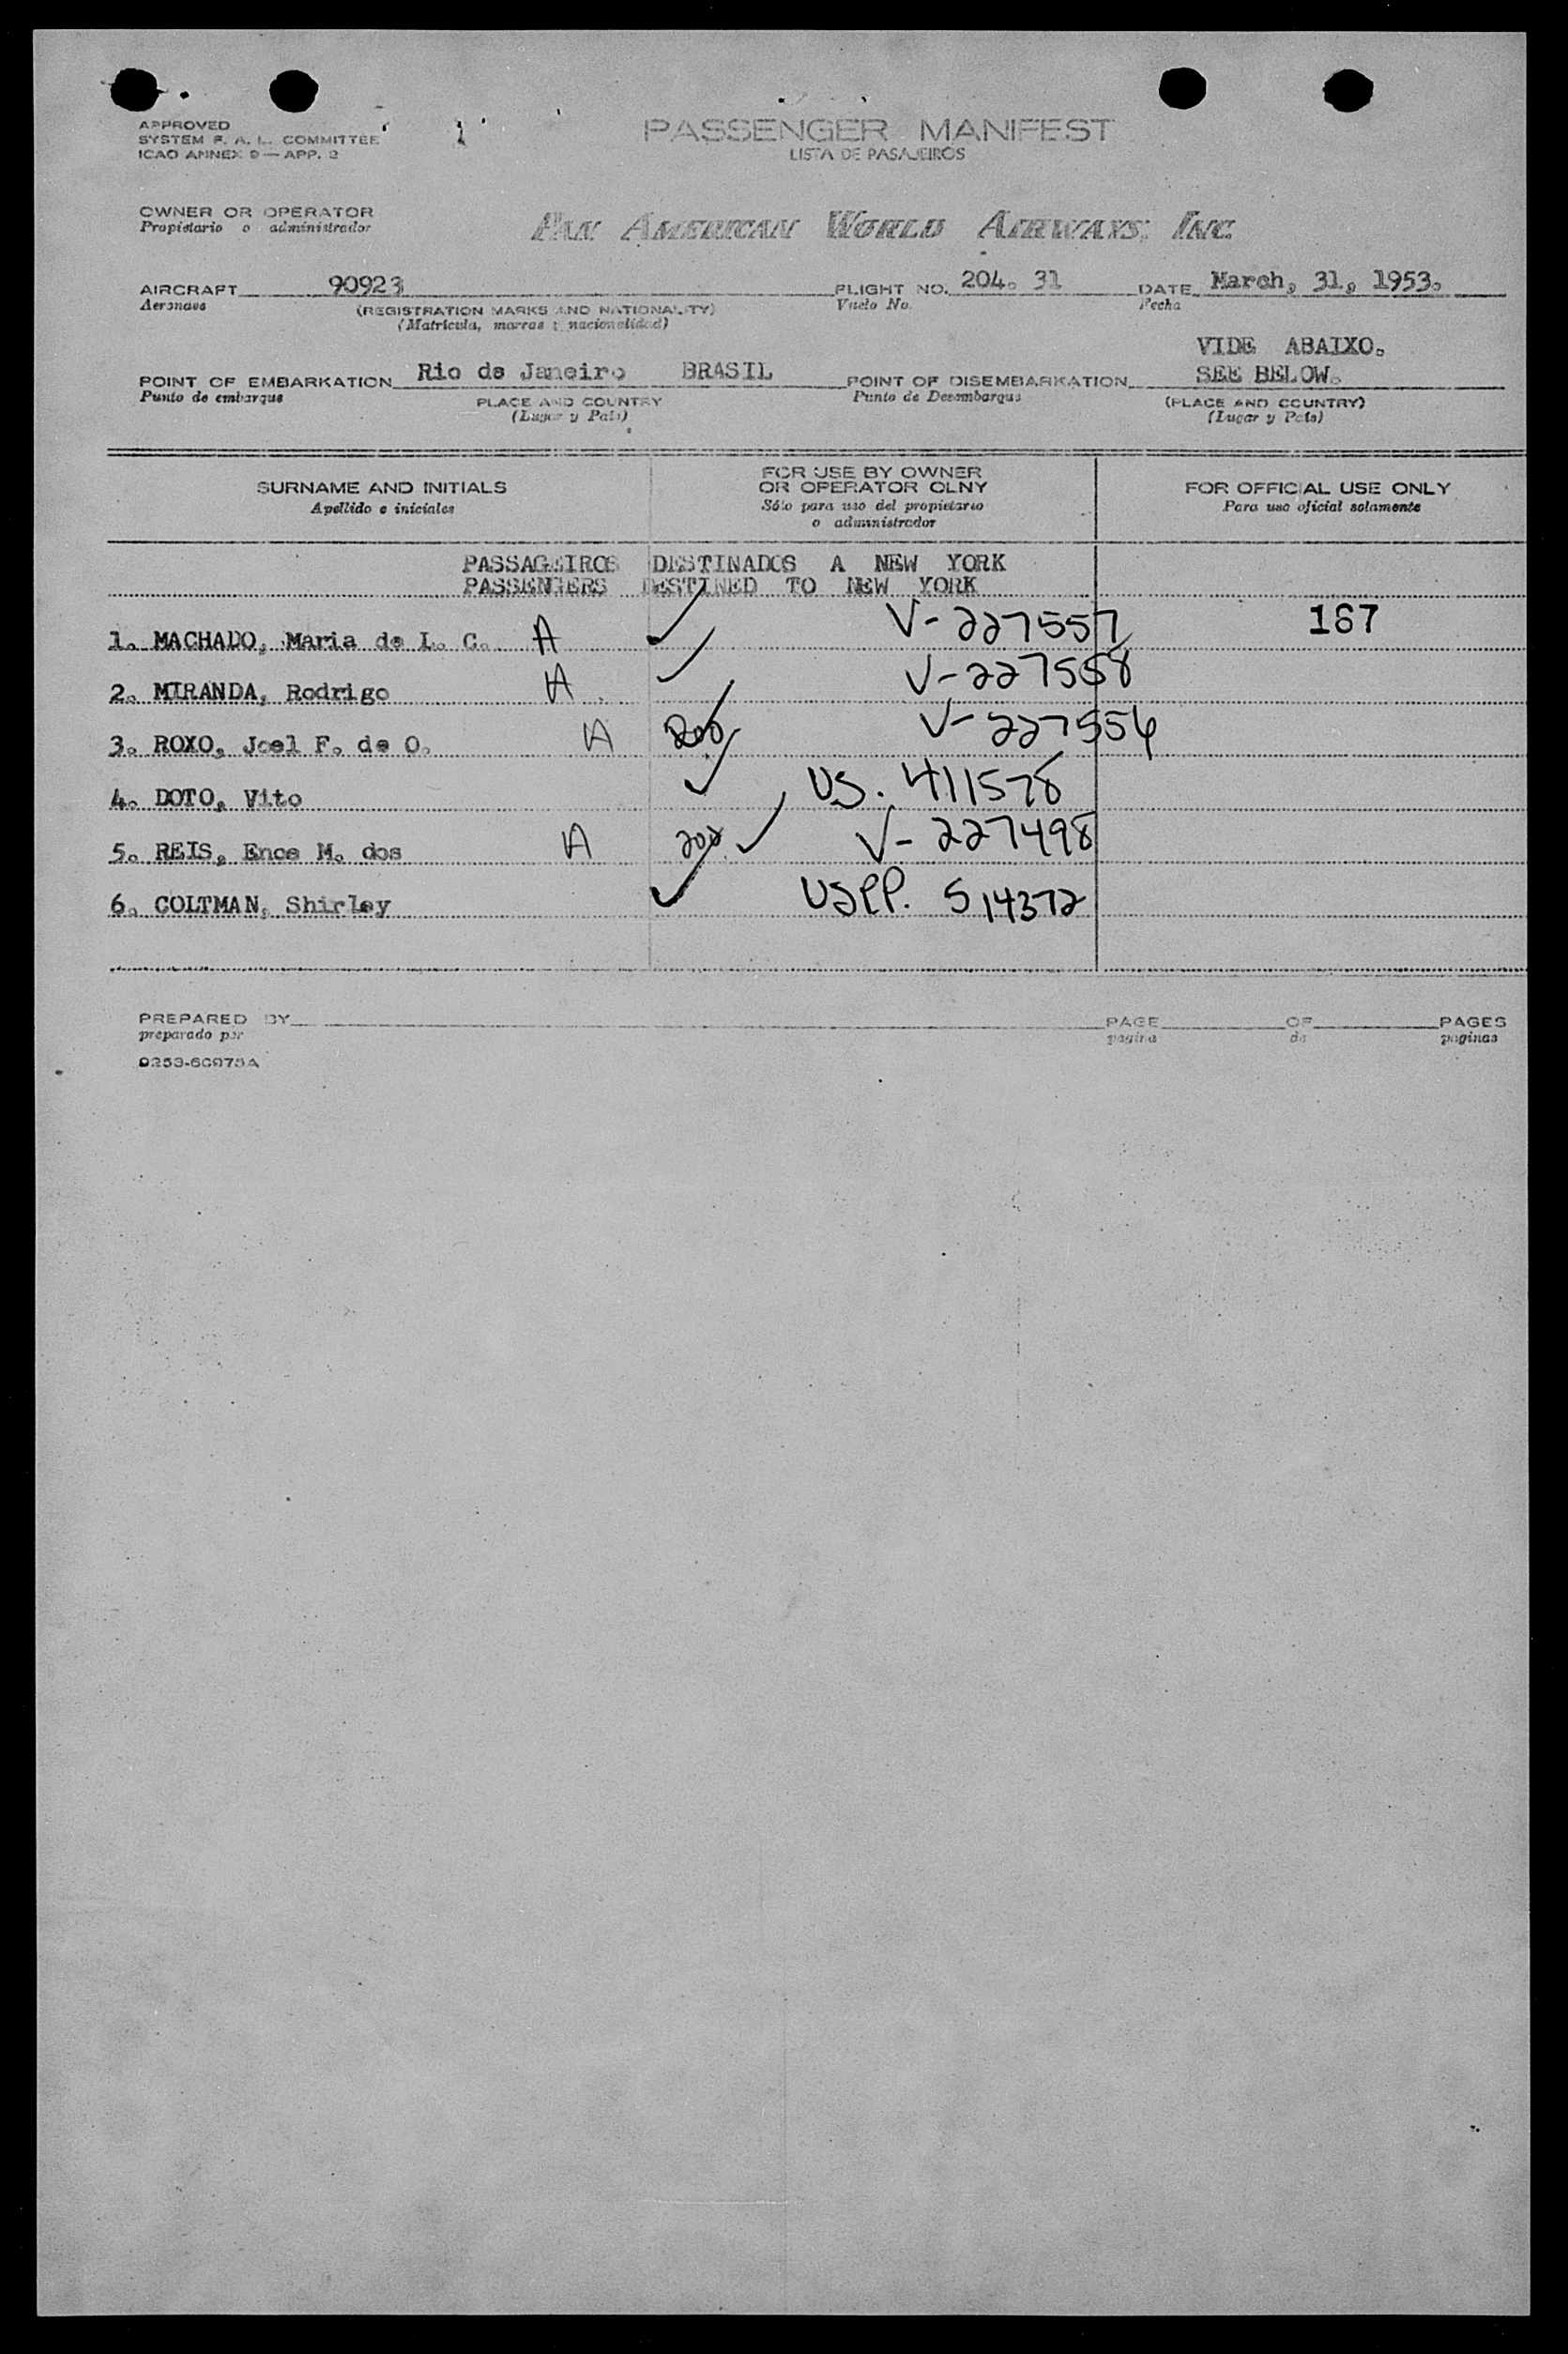 APPROVED
SYSTEM F. A. L. COMMITTEE
ICAO ANNEX 9 — APP. 2
PASSENGER MANIFEST
LISTA DE PASAJEIROS
OWNER OR OPERATOR
Propietario o administrador
PAN AMERICAN WORLD AIRWAYS, INC.
AIRCRAFT 90923
Aeronave
(REGISTRATION MARKS AND NATIONALITY)
(Matricula, marcas y nacionalidad)
FLIGHT NO. 204. 31
Vuelo No.
DATE March, 31, 1953.
Fecha
POINT OF EMBARKATION Rio de Janeiro BRASIL
Punto de embarque
PLACE AND COUNTRY
(Lugar y País)
VIDE ABAIXO.
POINT OF DISEMBARKATION SEE BELOW.
Punto de Desembarque
(PLACE AND COUNTRY)
(Lugar y País)
SURNAME AND INITIALS
Apellido e iniciales
FOR USE BY OWNER
OR OPERATOR OLNY
Sólo para uso del propietario
o administrador
FOR OFFICIAL USE ONLY
Para uso oficial solamente
PASSAGEIROS DESTINADOS A NEW YORK
PASSENGERS DESTINED TO NEW YORK
1. MACHADO, Maria de L. C. A ✓ V-227557 167
2. MIRANDA, Rodrigo A ✓ V-227558
3. ROXO, Joel F. de O. A 200 ✓ V-227556
4. DOTO, Vito ✓ US. 411578
5. REIS, Enoe M. dos A 200 ✓ V-227498
6. COLTMAN, Shirley ✓ USPP. 514372
PREPARED BY
preparado por
PAGE OF PAGES
pagina de paginas